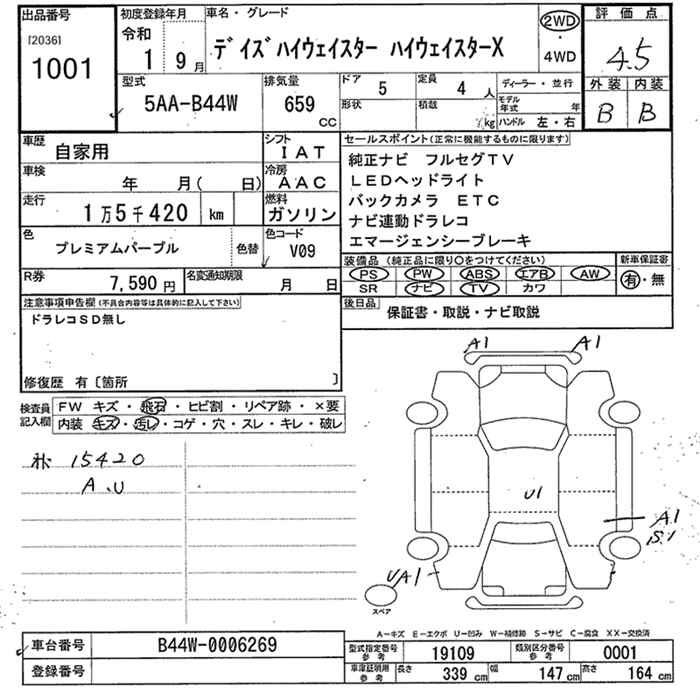 出品番号
[2036]
1001
初度登録年月
令和
1 9月
車名・グレード
デイズハイウェイスター ハイウェイスターX
2WD
・
4WD
評価点
4.5
外装 内装
B B
型式
5AA-B44W
排気量
659
CC
ドア
5
定員
4人
形状
積載
kg
ディーラー・並行
モデル年式 年
ハンドル 左・右
車歴
自家用
シフト
IAT
車検
年 月( 日)
冷房
AAC
走行
1万5千420 km
燃料
ガソリン
色
プレミアムパープル
色替
色コード
V09
R券
7,590円
名変通知期限
月 日
セールスポイント(正常に機能するものに限ります)
純正ナビ フルセグTV
LEDヘッドライト
バックカメラ ETC
ナビ連動ドラレコ
エマージェンシーブレーキ
装備品 (純正品に限り○をつけてください)
PS PW ABS エアB AW
SR ナビ TV カワ
新車保証書
有・無
後日品
保証書・取説・ナビ取説
注意事項申告欄(不具合内容等は具体的に記入して下さい)
ドラレコSD無し
修復歴 有〔箇所 〕
検査員記入欄
FW キズ・飛石・ヒビ割・リペア跡・×要
内装 キズ・汚レ・コゲ・穴・スレ・キレ・破レ
15420
A.U
A1 A1
U1
A1
S1
UA1
スペア
A-キズ E-エクボ U-凹み W-補修跡 S-サビ C-腐食 XX-交換済
車台番号
B44W-0006269
登録番号
型式指定番号 参考
19109
類別区分番号 参考
0001
車庫証明用 参考
長さ 339 cm
幅 147 cm
高さ 164 cm